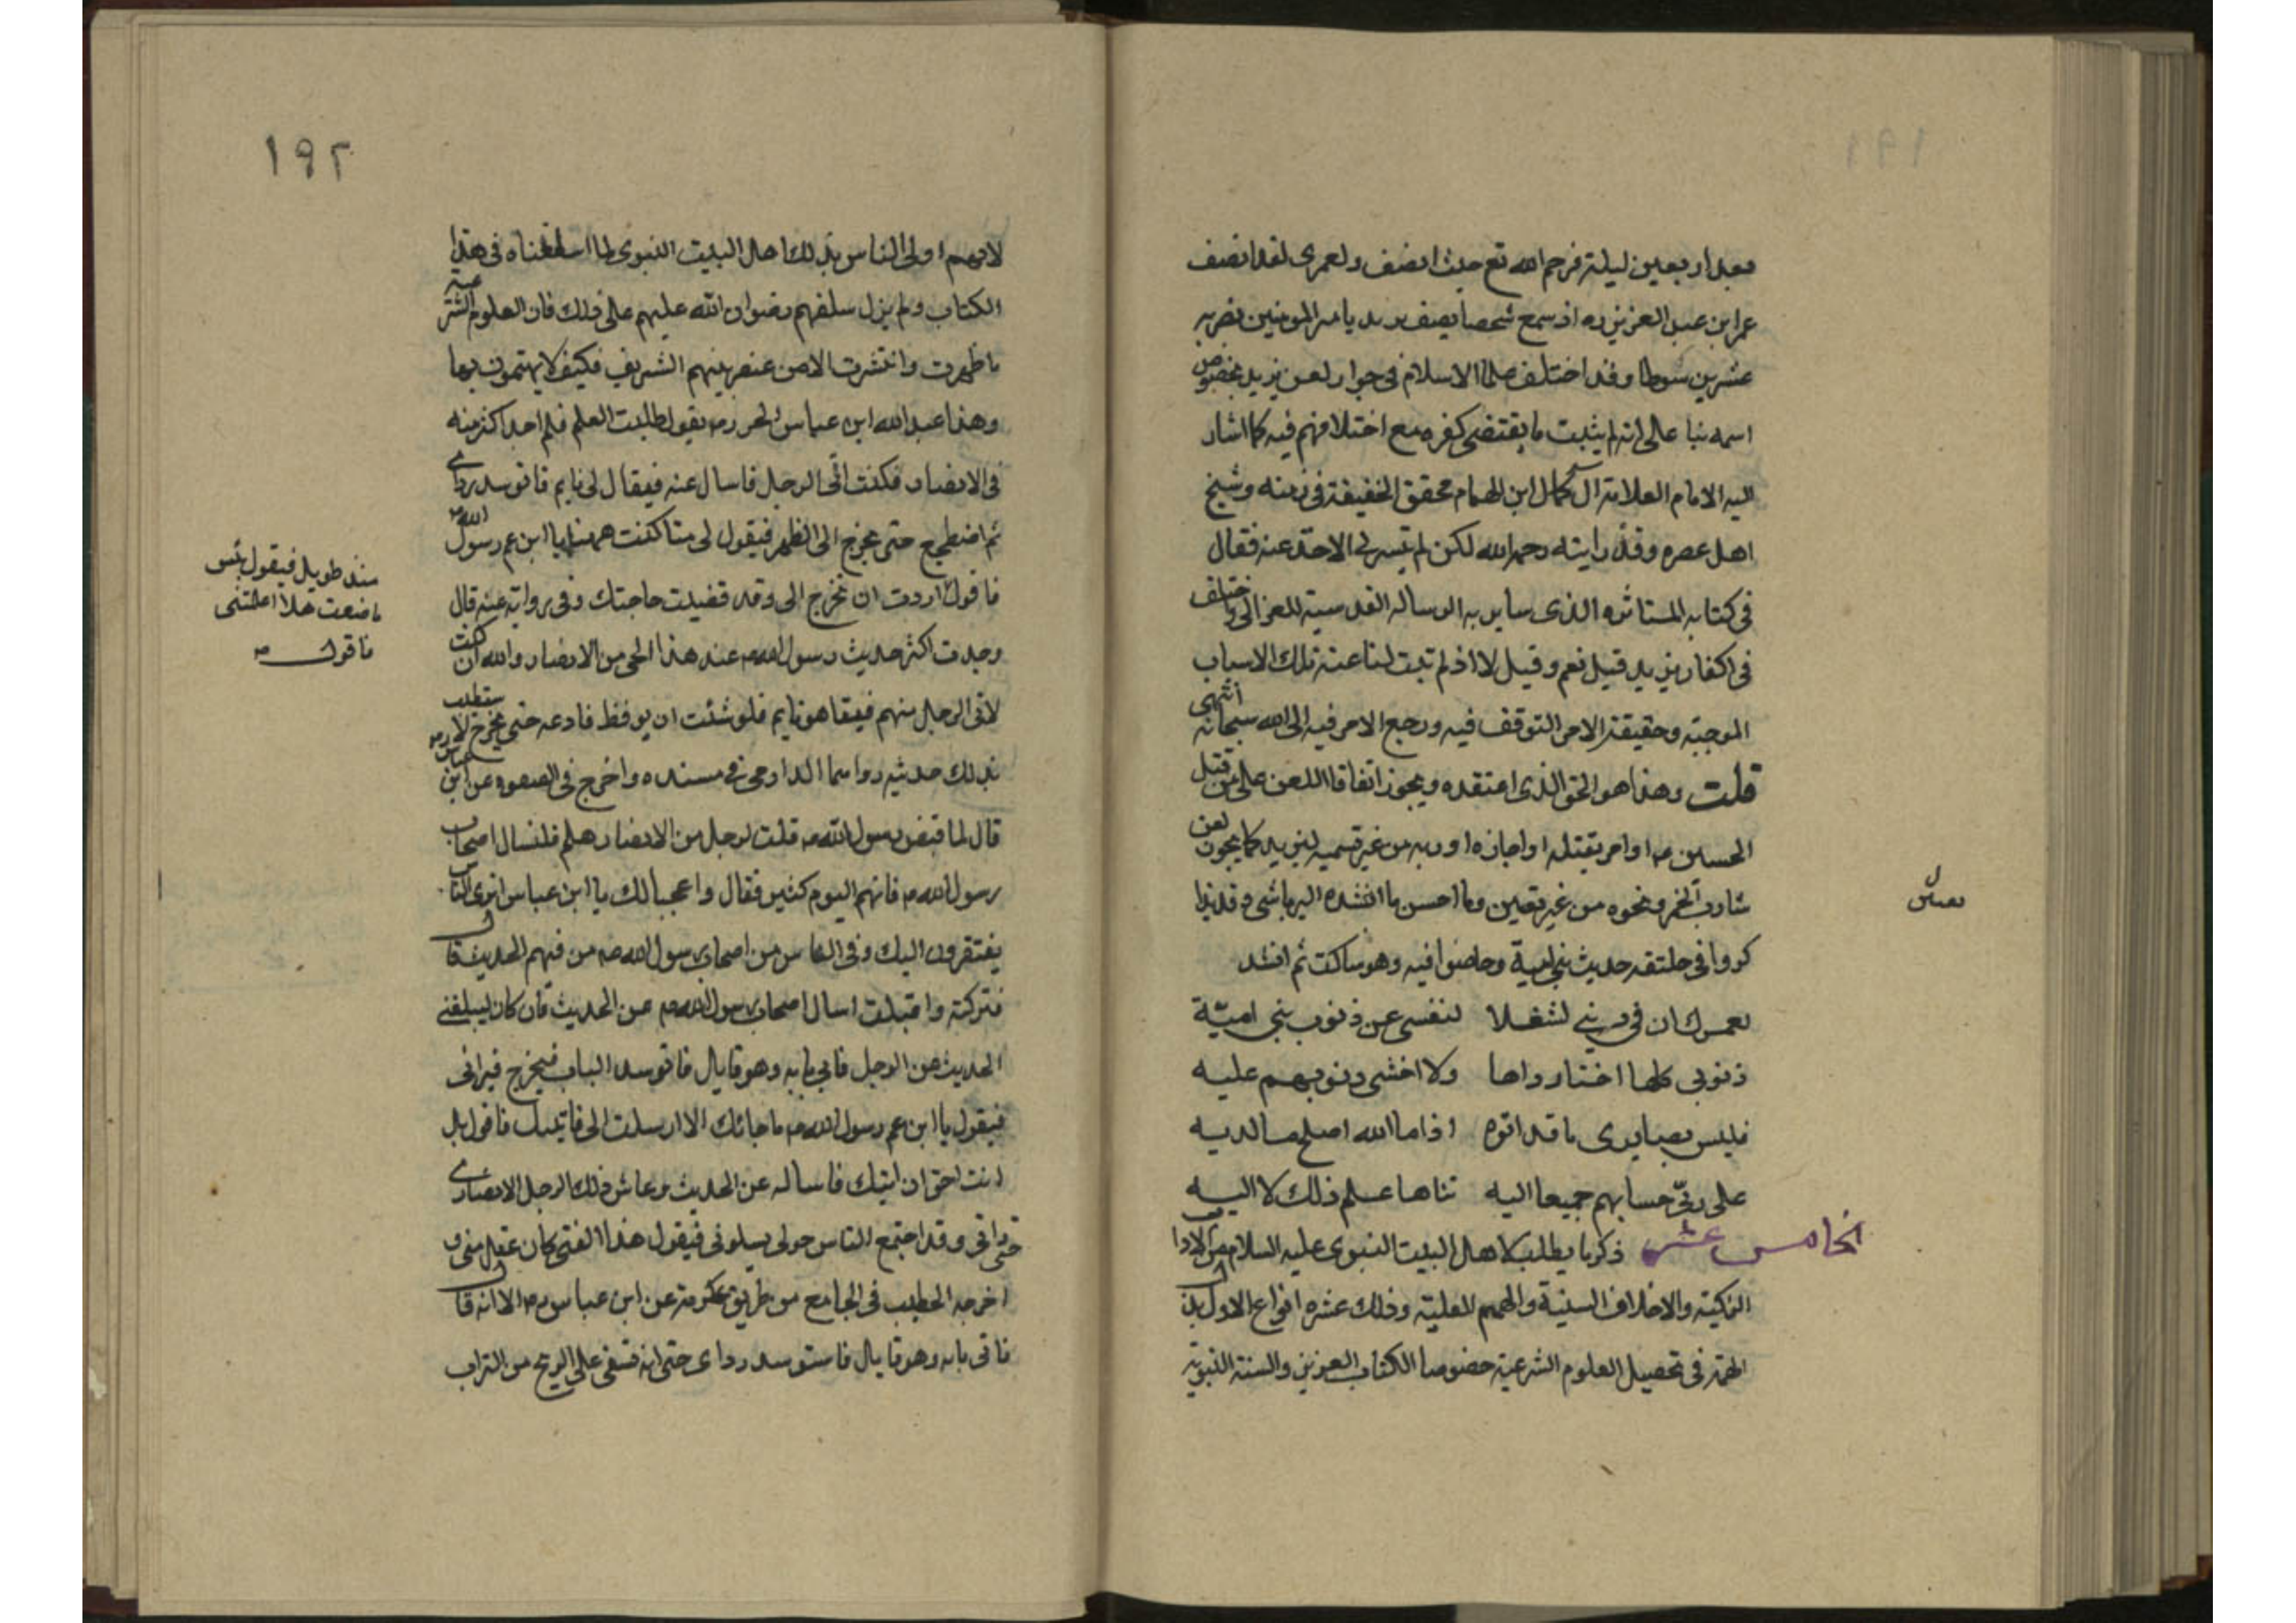 ١٩١
بعد اربعين ليلة فرحم الله تع حيث انصف ولعمرى لقد انصف
عمر ابن عبد العزيز ره اذ سمع شخصا يصف يزيد يا مير المومنين بضربه
عشرين سوطا وقد اختلف علما الاسلام فى جواز لعن يزيد بخصوص
اسمه بنا على انه لم يثبت ما يقتضى كفره مع اختلافهم فيه كما اشار
اليه الامام العلامة الكمال ابن الهمام محقق الحنفية فى زمنه وشيخ
اهل عصره وقد رايته رحمه الله لكن لم تيسر لى الاخذ عنه فقال
فى كتابه المسائره الذى ساير به الرساله القدسية للغزالى واختلف
فى اكفار يزيد قيل نعم وقيل لا اذ لم تثبت لنا عنه تلك الاسباب
الموجبة وحقيقة الامر التوقف فيه ورجع الامر فيه الى الله سبحانه انتهى
قلت وهذا هو الحق الذى اعتقده ويجوز اتفاقا اللعن على من قتل
الحسين ع او امر بقتله او اجازه او رضى به من غير تسميه ليزيد كما يجوز لعن
شارب الخمر ونحوه من غير تعين وما احسن ما انشده الرياشى وقد تذا
كروا فى حلقته حديث بنى امية وخاضوا فيه وهو ساكت ثم انشد
لعمرك ان فى دينى لشغلا لنفسى عن ذنوب بنى امية
ذنوبى كلها اختار داها ولا اخشى ذنوبهم عليه
فليس بضايرى ما قد اتوه اذا ما الله اصلح ما لديه
على ربى حسابهم جميعا اليه تناها علم ذلك لا اليه
الخامس عشر ذكر ما يطلب لاهل البيت النبوى عليه السلام من الاداب
الزكية والاخلاق السنية والهمم العلية وذلك عشره انواع الاول بذل
الهمة فى تحصيل العلوم الشرعية خصوصا الكتاب العزيز والسنة النبوية
١٩٢
لانهم اولى الناس بذلك اهل البيت النبوى لما اسلفناه فى هذا
الكتاب ولم يزل سلفهم رضوان الله عليهم على ذلك فان العلوم الشرعية
ما ظهرت وانتشرت الا من عنصر بيتهم الشريف فكيف لا يهتمون بها
وهذا عبد الله ابن عباس الحبر رض يقول طلبت العلم فلم اجد اكثر منه
فى الانصار فكنت اتى الرجل فاسال عنه فيقال لى نايم فاتوسد رداى
ثم اضطجع حتى يخرج الى الظهر فيقول لى متا كنت ههنا يا ابن عم رسول الله
منذ طويل فيقول بئس
ما صنعت هلا اعلمتنى
فاقول
فاقول اردت ان تخرج الى وقد قضيت حاجتك وفى رواية عنه قال
وجدت اكثر حديث رسول الله ص عند هذا الحى من الانصار والله ان كنت
لاتى الرجل منهم فيقا هو نايم فلو شئت ان يوقظ فادعه حتى يخرج لاستطيب
بذلك حديثه رواهما الدارمى فى مسنده واخرج فى الصفوه عن ابن عباس رض
قال لما قبض رسول الله ص قلت لرجل من الانصار هلم فلنسال اصحاب
رسول الله ص فانهم اليوم كثير فقال واعجبا لك يا ابن عباس اترى الناس
يفتقرون اليك وفى الناس من اصحاب رسول الله ص من فيهم الحديث قال
فتركته واقبلت اسال اصحاب رسول الله ص عن الحديث فان كان ليبلغنى
الحديث عن الرجل فاتى بابه وهو قايل فاتوسد الباب فيخرج فيرانى
فيقول يا ابن عم رسول الله ص ما جائك الا ارسلت الى فاتيك فاقول بل
انت احق ان اتيك فاساله عن الحديث وعاش ذلك الرجل الانصارى
حتى رانى وقد اجتمع الناس حولى يسلونى فيقول هذا الفتى كان عقل منى و
اخرجه الخطيب فى الجامع من طريق عكرمة عن ابن عباس رض الا انه قال
فاتى بابه وهو قايل فاستوسد رداى حتى انه تسفى على الريح من التراب